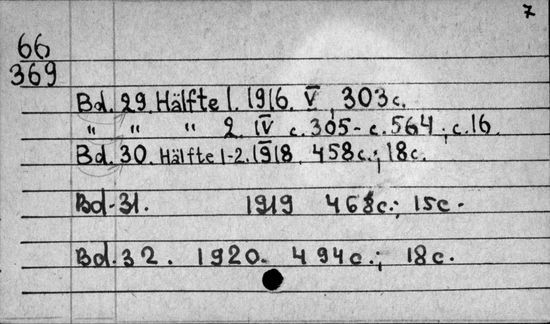 7
66
369
Bd. 29. Hälfte 1. 1916. V, 303 c.
" " " 2. IV c. 305 - c. 564; c. 16.
Bd. 30. Hälfte 1-2. 1918. 458 c.; 18 c.
Bd. 31. 1919 468 c.; 15 c.
Bd. 32. 1920. 494 c.; 18 c.